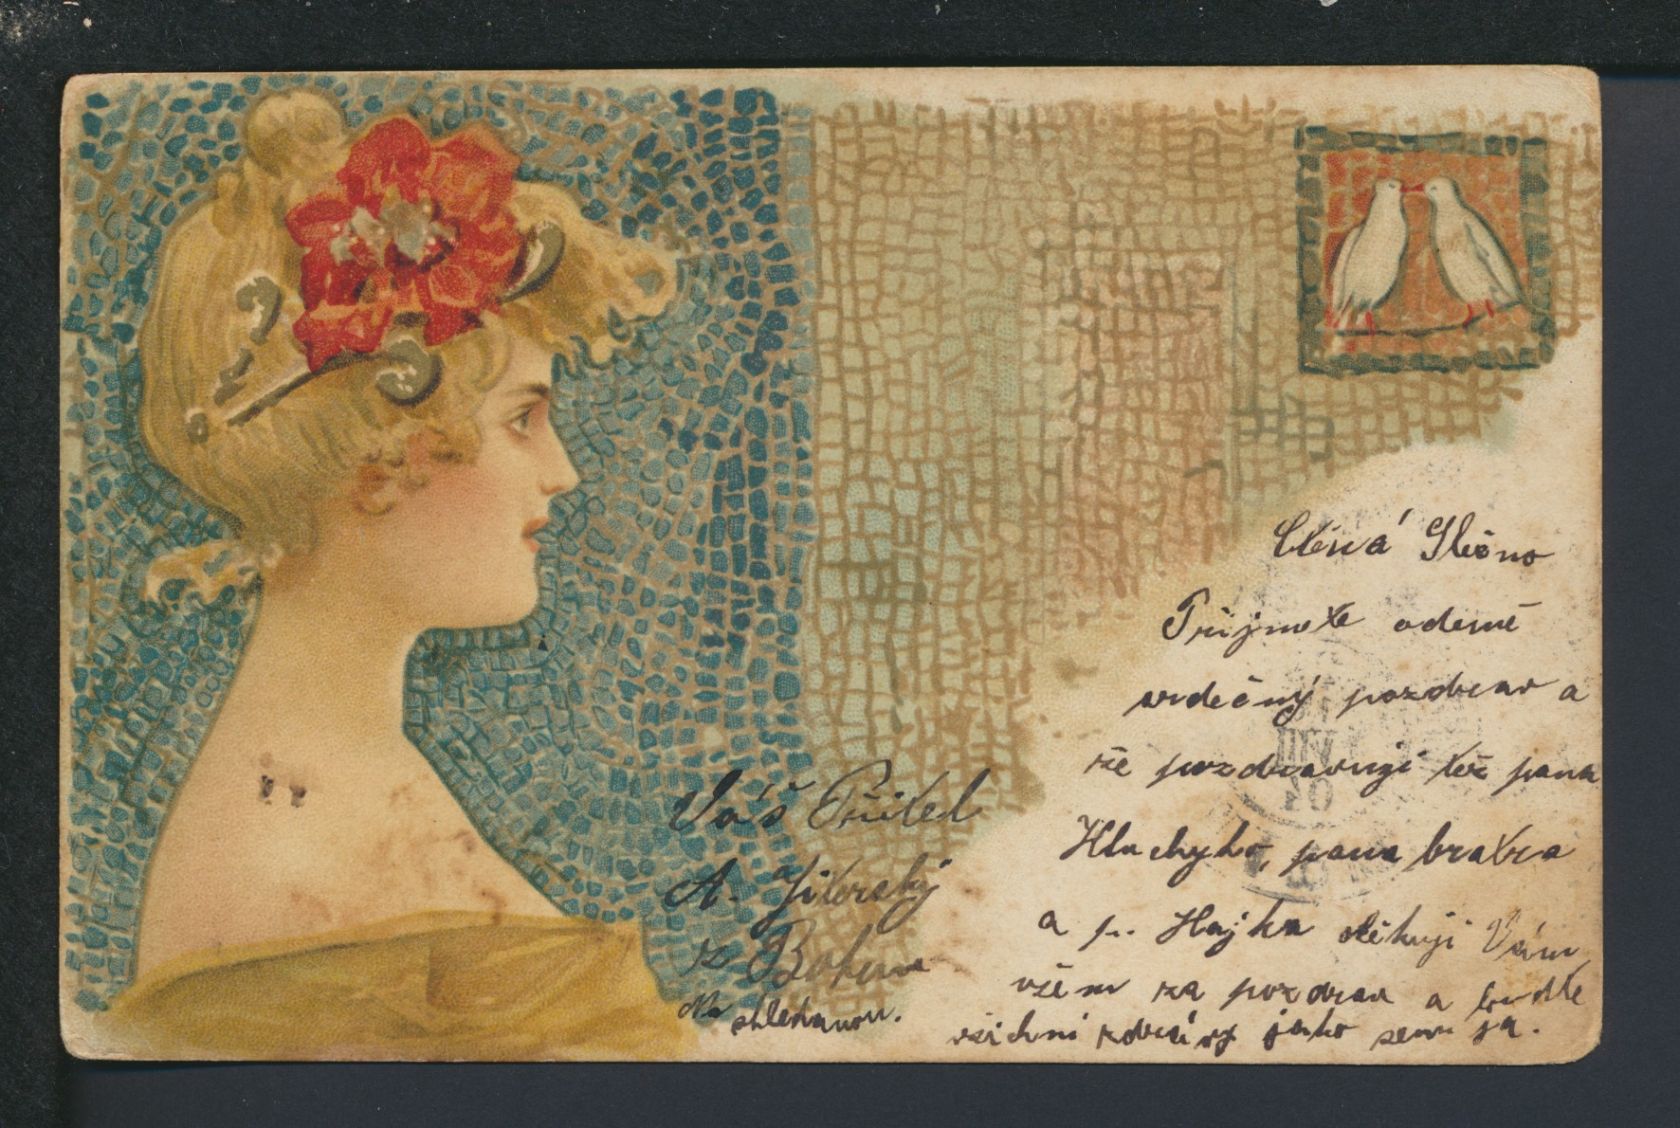 Ctěná Slečno
Přijmete odemě
srdečný pozdrav a
že pozdravuji též pana
Hluchyho, pana bratra
a p. Hajka děkuji Vám
všem za pozdrav a budte
všichni zdrávy jako sem ja.
Váš Přítel
A. Jiterský
z
Na shledanou.